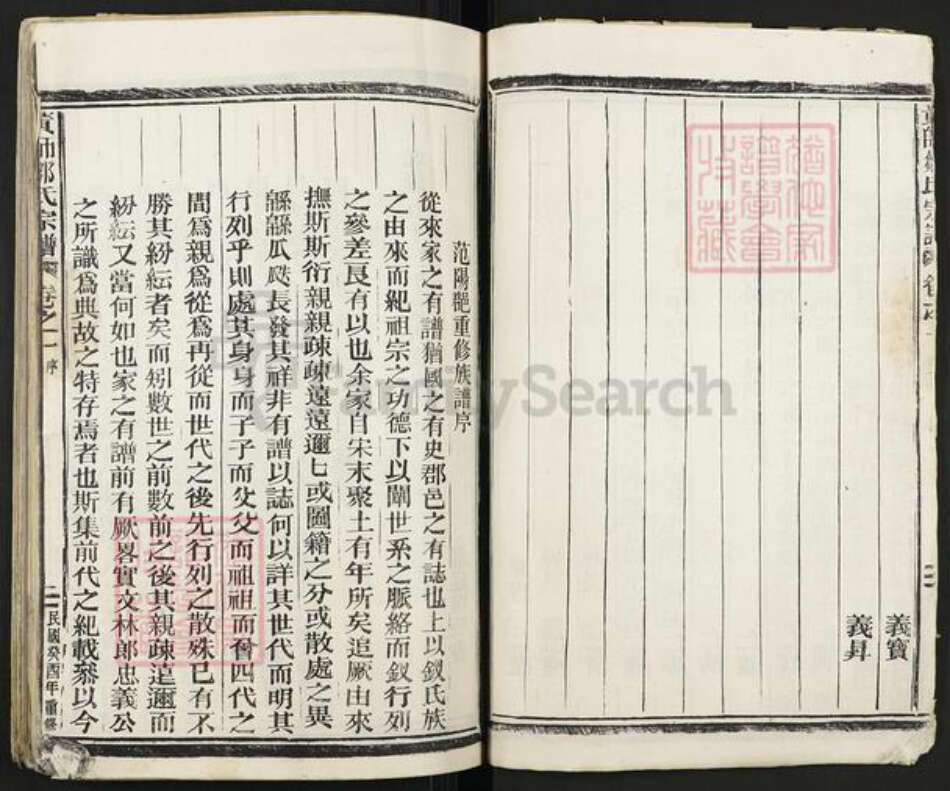 義寶
義昇
范陽郡重修族譜序
從來家之有譜猶國之有史郡邑之有誌也上以敘氏族
之由來而紀祖宗之功德下以闡世系之脈絡而敘行列
之參差良有以也余家自宋末聚土有年所矣追厥由來
撫斯斯衍親親疎疎遠遠邇匕或圖籍之分或散處之異
緜緜瓜瓞長發其祥非有譜以誌何以詳其世代而明其
行列乎則處其身身而子子而父父而祖祖而曾四代之
間爲親爲從爲再從而世代之後先行列之散殊已有不
勝其紛紜者矣而矧數世之前數前之後其親疎遠邇而
紛紜又當何如也家之有譜前有厥畧實文林郎忠義公
之所識爲典故之特存焉者也斯集前代之紀載叅以今
黃師鄒氏宗譜 卷之一 序
二 民國癸酉年重修
FamilySearch